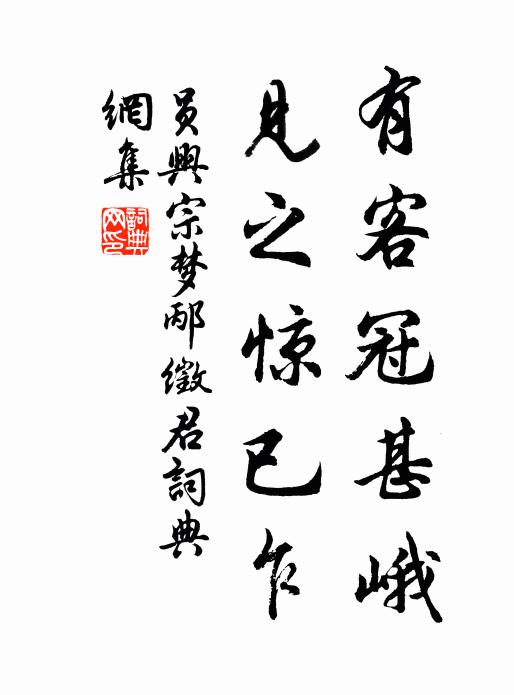 有客冠甚峨
見之惊已乍
員興宗梦邴徵君詞典
網集
詞典网印